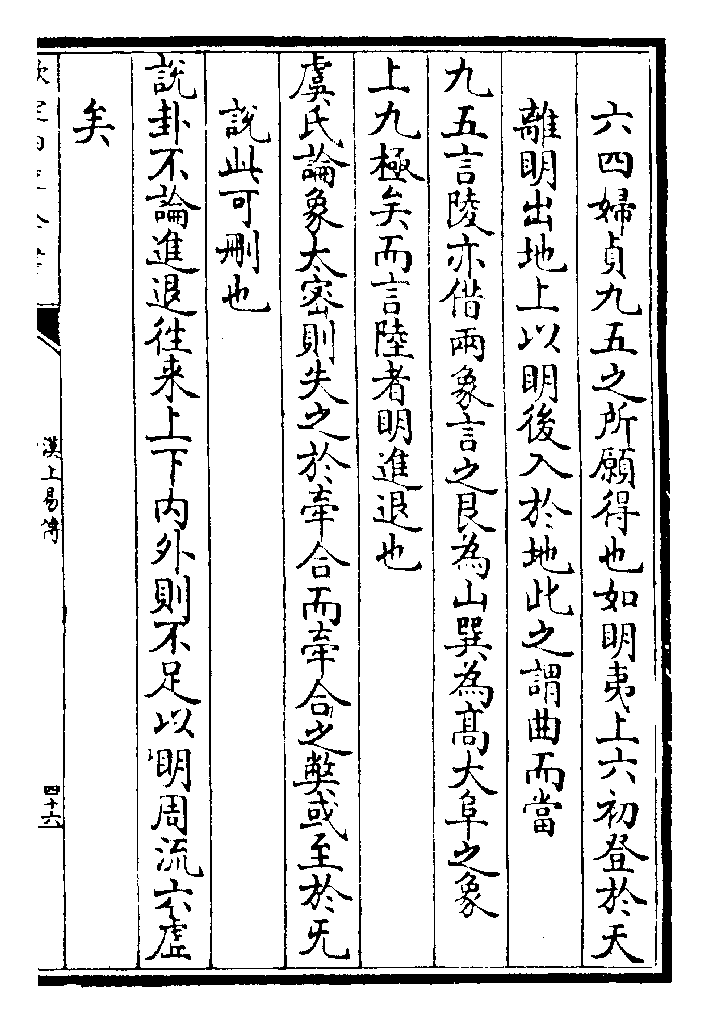 六四婦貞九五之所願得也如明夷上六初登於天
離明出地上以明後入於地此之謂曲而當
九五言陵亦借兩象言之艮為山巽為髙大阜之象
上九極矣而言陸者明進退也
虞氏論象太密則失之於牽合而牽合之弊或至於无
說此可刪也
說卦不論進退往来上下内外則不足以明周流六虛
矣
漢上易傳
四十六